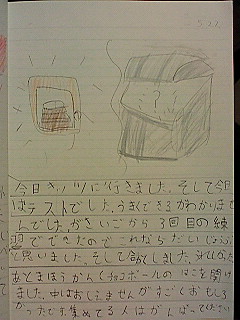 5.22
今日キッツに行きました。そして今日
はテストでした。うまくできるかわかりませ
んでした。かさいごから3回目の練
習でできたのでこれならだいじょうぶ
と思いました。そして合かくしました。
までまほうかんくチョコボールのはこを開け
ました。中はおしえませんがすごくおもしろ
かったです。集めてる人はがんばってください